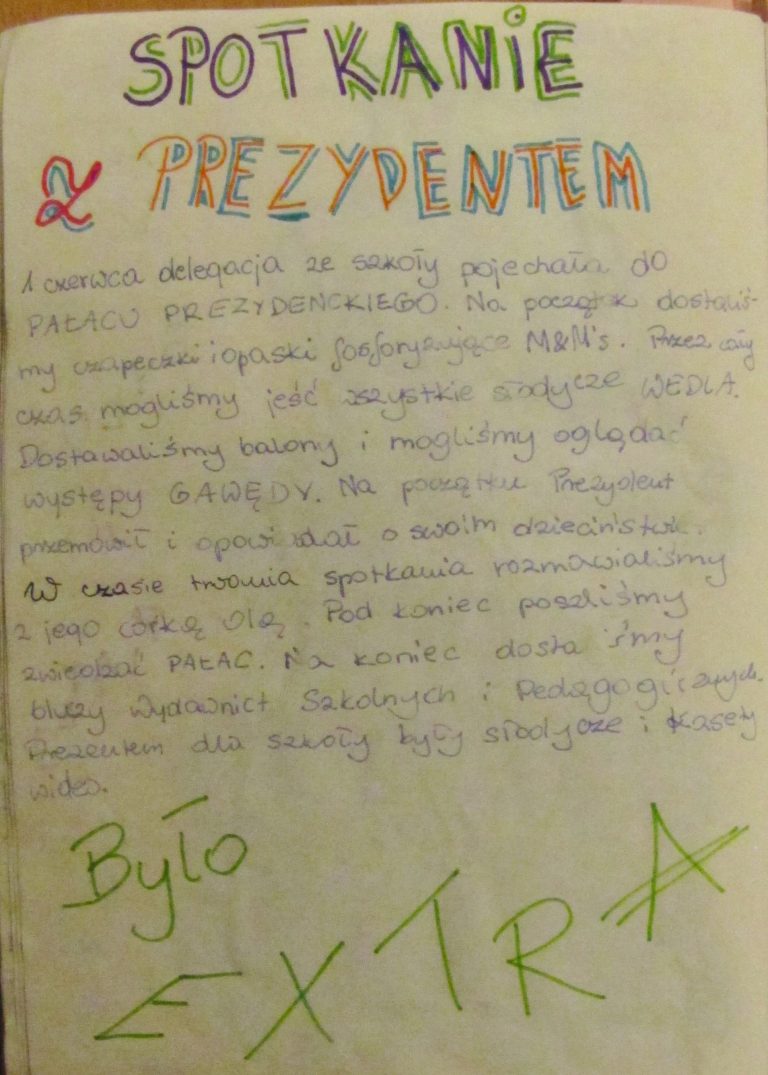 SPOTKANiE
Z PREZYDENTEM
1 czerwca delegacja ze szkoły pojechała do
PAŁACU PREZYDENCKIEGO. Na początek dostaliś-
my czapeczki i opaski fosforyzujące M&M's. Przez cały
czas mogliśmy jeść wszystkie słodycze WEDLA.
Dostawaliśmy balony i mogliśmy oglądać
występy GAWĘDY. Na początku Prezydent
przemówił i opowiadał o swoim dzieciństwie.
W czasie trwania spotkania rozmawialiśmy
z jego córką Olą. Pod koniec poszliśmy
zwiedzać PAŁAC. Na koniec dostaliśmy
bluzy Wydawnict Szkolnych i Pedagogicznych.
Prezentem dla szkoły były słodycze i kasety
wideo.
Było
EXTRA